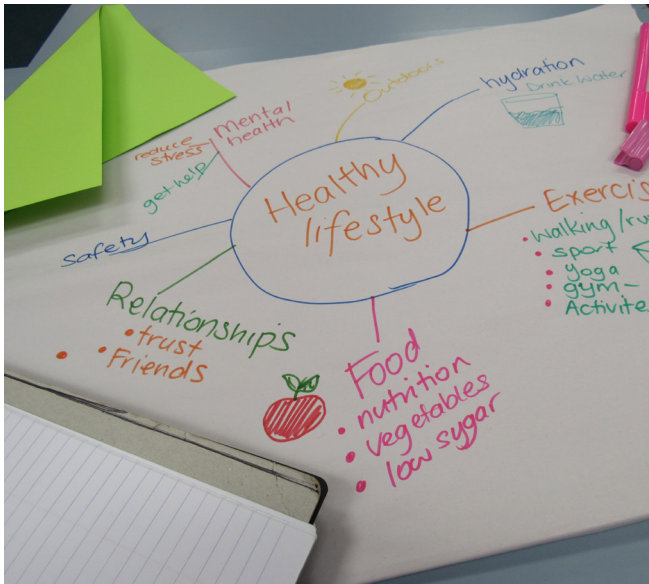 Healthy
lifestyle
Outdoors
hydration
Drink Water
Exercis
walking/ru
sport
yoga
gym-
Activite
Food
nutrition
vegetables
low sugar
Relationships
trust
Friends
Safety
Mental
health
reduce
stress
get help